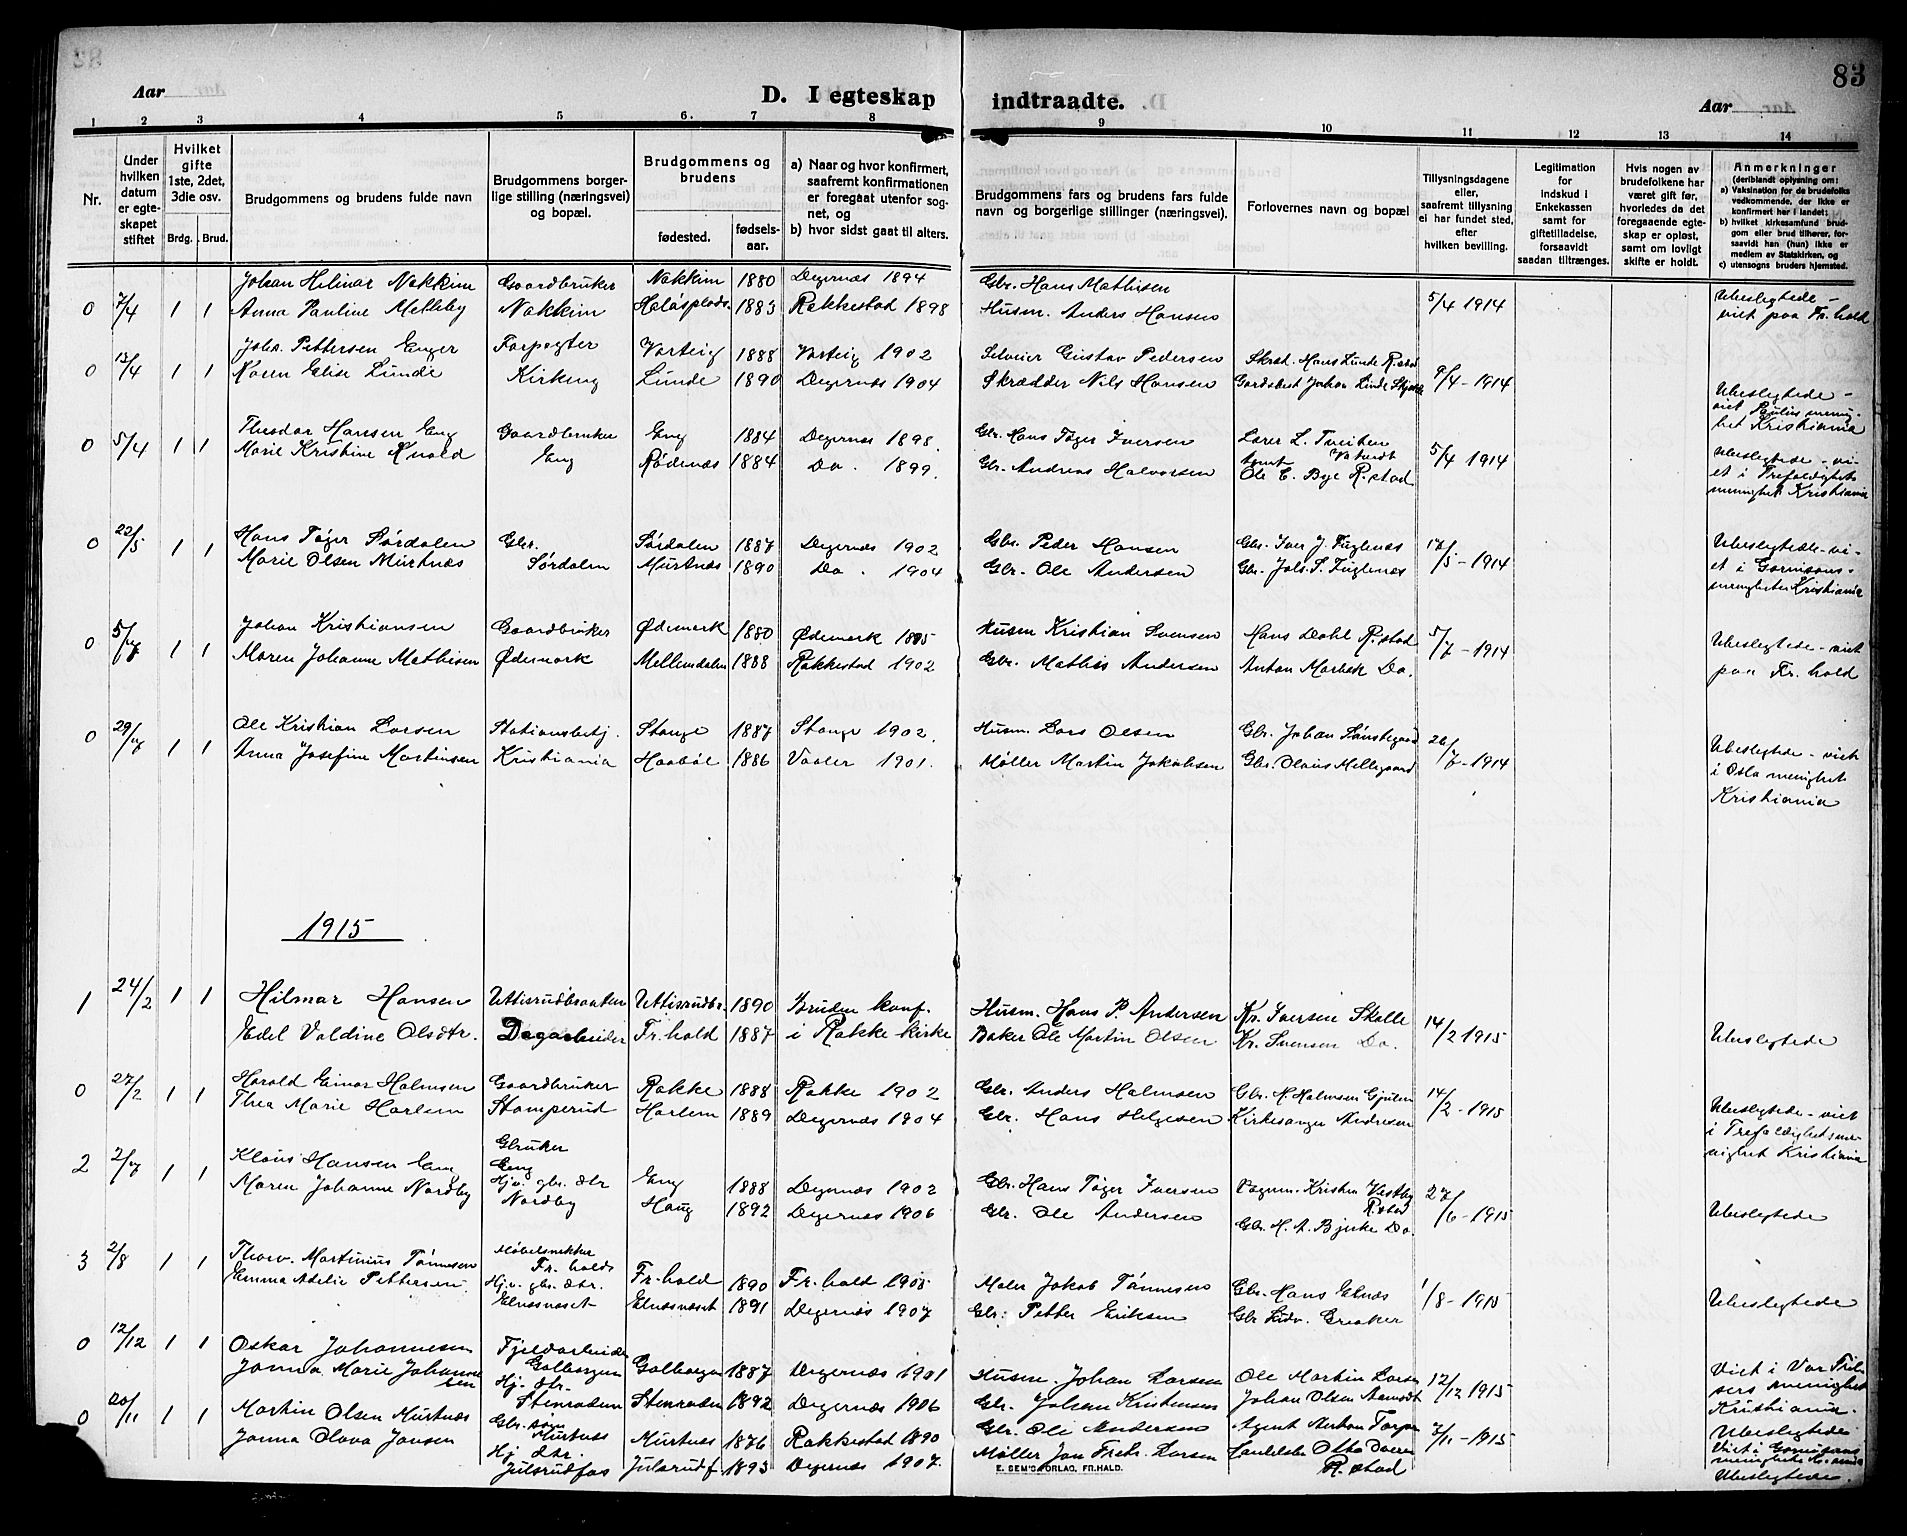 83
Aar
D. I egteskap
indtraadte.
Aar
1 2 3 4 5 6. 7 8 9 10 11 12 13 14
Nr.
Under hvilken datum er egteskapet stiftet
Hvilket gifte 1ste, 2det, 3die osv.
Brdg. Brud.
Brudgommens og brudens fulde navn
Brudgommens borgerlige stilling (næringsvei) og bopæl.
Brudgommens og brudens
fødested.
fødselsaar.
a) Naar og hvor konfirmert, saafremt konfirmationen er foregaat utenfor sognet, og
b) hvor sidst gaat til alters.
Brudgommens fars og brudens fars fulde navn og borgerlige stillinger (næringsvei).
Forlovernes navn og bopæl
Tillysningsdagene eller, saafremt tillysning ei har fundet sted, efter hvilken bevilling.
Legitimation for indskud i Enkekassen samt for giftetilladelse, forsaavidt saadan tiltrænges.
Hvis nogen av brudefolkene har været gift før, hvorledes da det foregaaende egteskap er opløst, samt om lovligt skifte er holdt.
Anmerkninger
(deriblandt oplysning om:
a) Vaksination for de brudefolks vedkommende, der ikke er konfirmert her i landet;
b) hvilket kirkesamfund brudgom eller brud tilhører, forsaavidt han (hun) ikke er medlem av Statskirken, og
c) utensogns bruders hjemsted.
0 7/4 1 1 Johan Hilmar Nakkim Gaardbruker Nakkim 1880 Degernæs 1894 Gbr. Hans Mathisen 5/4 1914 Ubeslegtede -
Anna Pauline Melleby Nakkim 1883 Rakkestad 1898 Husm. Anders Hansen viet paa Fr. hald
0 13/4 1 1 Johs. Pettersen Enger Forpagter Varteig 1888 Varteig 1902 Gustav Pedersen Skræd. Hans Lunde R.stad 9/4 - 1914 Ubeslegtede -
Karen Elise Lunde Kirkeng Lunde 1890 Degernæs 1904 Skrædder Nils Hansen Johan Linde viet Paulus menighet Kristiania
0 5/4 1 1 Theodor Hansen Eng Gaardbruker Eng 1884 Degernæs 1898. Gbr. Hans Tøger Iversen Lærer L. Tveiten 5/4 1914 Ubeslegtede - vi-
Marie Kristine Eng Rødenæs 1884 Do. 1899. Gbr. Andreas Halvorsen Ole E. Bye R.stad et i Trefoldighets
menighet Kristiania
0 22/5 1 1 Hans Tøger Sørdalen Gbr. Sørdalen 1887 Degernæs 1902 Gbr. Peder Hansen Gbr. Iver J. Fuglenæs 17/5 - 1914 Ubeslegtede - vi-
Marie Olsen Murtnæs Sørdalen Murtnæs 1890 Do. 1904 Gbr. Ole Andersen Gbr. Johs. S. Fuglenæs et i Garnisons-
menigheten Kristiania
0 5/7 1 1 Johan Kristiansen Gaardbruker Ødemark 1880 Ødemark 1895 Husm Kristian Svensen Hans Dahl R.stad 5/7 - 1914 Ubeslegtede - viet
Maren Johanne Mathisen Ødemark Mellemdalen 1888 Rakkestad 1902 Gbr. Mathis Andersen Anton Marbek Do. paa Fr. hald
0 29/7 1 1 Ole Kristian Larsen Stationsbetj. Stange 1887 Stange 1902. Husm. Lars Olsen Gbr. Johan 26/7 - 1914 Ubeslegtede - viet
Anna Josefine Martinsen Kristiania Haabøl 1886 Vaaler 1901. Møller Martin Jakobsen Gbr. Olaus Mellegaard i Oslo menighet
Kristiania
1915
1 24/2 1 1 Hilmar Hansen Uttisrudbraaten 1890 Bruden konf. Husm. Hans P. Andersen Kr. Iversen Skolle 14/2 1915 Ubeslegtede
Edel Valdine Olsdtr. Dagarbeider Fr. hald 1887 i Rakke kirke Baker Ole Martin Olsen Kr. Svensen Do.
0 27/2 1 1 Harald Einar Halmsen Gaardbruker Rakke 1888 Rakke 1902 Gbr. Anders Halmsen Gbr. H. Halmsen 14/2 - 1915 Ubeslegtede - viet
Thea Marie Harlem Stomperud Harlem 1889 Degernæs 1904 Gbr. Hans Helgesen Kirkesanger Andresen i Trefoldighetsme-
nighet Kristiania
2 2/7 1 1 Klaus Hansen Eng Gbruker Eng Eng 1888 Degernæs 1902 Gbr. Hans Tøger Iversen Kristen Vestby R.stad 27/6 - 1915 Ubeslegtede
Maren Johanne Nordby Hjv. gbr. dtr Nordby Haug 1892 Degernæs 1906 Gbr. Ole Andersen Gbr. H. A. Bjerke Do.
3 2/8 1 1 Thorv. Martinius Tønnesen Møbelsnekker Fr. hald Fr. hald 1890 Fr. hald 1905 Maler Jakob Tønnesen Gbr. Hans Elnæs 1/8 - 1915 Ubeslegtede
Emma Adelie Pettersen Hjv. gbr. dtr. Elnæsnæset Elnæsnæset 1891 Degernæs 1907 Gbr. Petter Eriksen Gbr Ludv. Greaker
0 12/12 1 1 Oskar Johannesen Fjeldarbeider Golbergen Golbergen 1887 Degernæs 1901 Husm. Johan Larsen Ole Martin Larsen 12/12 1915 Viet i Vor Frel-
Janna Marie Johannesen Hj. dtr. Stenraden Stenraden 1892 Degernæs 1906 Gbr. Johan Kristensen Johan Olsen Aamodt sers menighet
Kristiania. Ubeslegtede
0 20/11 1 1 Martin Olsen Murtnæs Gbr. søn Murtnæs Murtnæs 1876 Rakkestad 1890 Gbr. Ole Andersen Agent Anton Torper 7/11 - 1915 Viet i Garnisons
Janna Olava Jansen Hj. dtr. Julsrudfos Julsrudf 1893 Degernæs 1907. Møller Jan Fredr. Larsen Otto R. stad Ubeslegtede.
E. SEM'S FORLAG, FR.HALD.